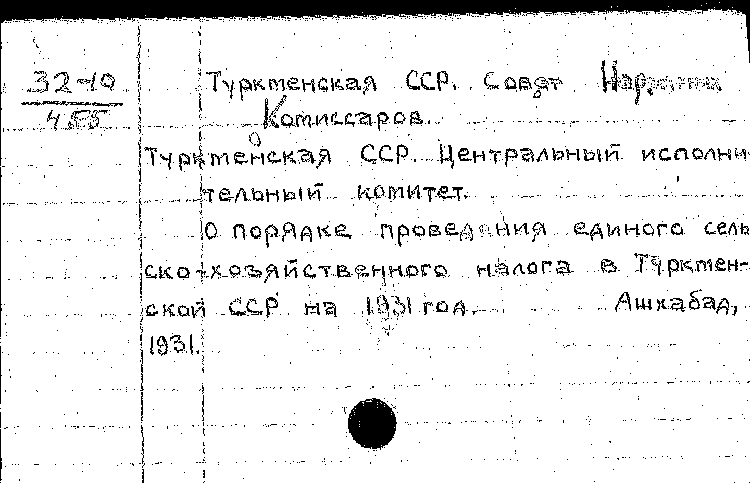 32-10
455
Туркменская ССР. Совет Народных
Комиссаров.
Туркменская ССР. Центральный исполни-
тельный комитет.
О порядке проведения единого сель
ско-хозяйственного налога в Туркмен-
ской ССР на 1931 год. Ашхабад,
1931.